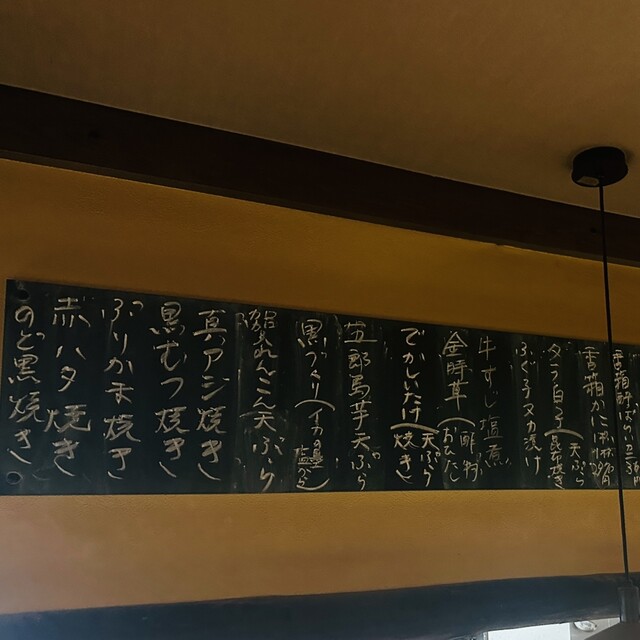 香箱かに
タラ白子(天ぷら
ふぐ子ヌカ漬け
牛すじ塩煮
金時草(酢の物 おひたし
でかしいたけ(天ぷら 焼き)
五郎島芋天ぷら
黒づくり(イカの墨 塩から)
れんこん天ぷら
真アジ焼き
黒むつ焼き
ぶりかま焼き
赤ハタ焼き
のど黒焼き